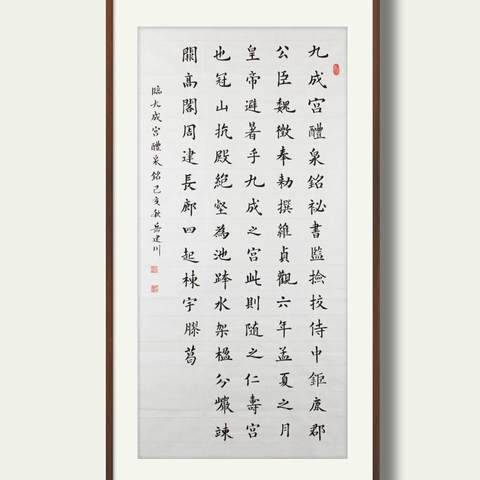 九成宮醴泉銘祕書監撿挍侍中鉅鹿郡
公臣魏徵奉勅撰維貞觀六年孟夏之月
皇帝避暑乎九成之宮此則随之仁壽宮
也冠山抗殿絕壑為池跨水架楹分巖竦
闕高閣周建長廊四起棟宇膠葛
臨九成宮醴泉銘己亥秋岳建川